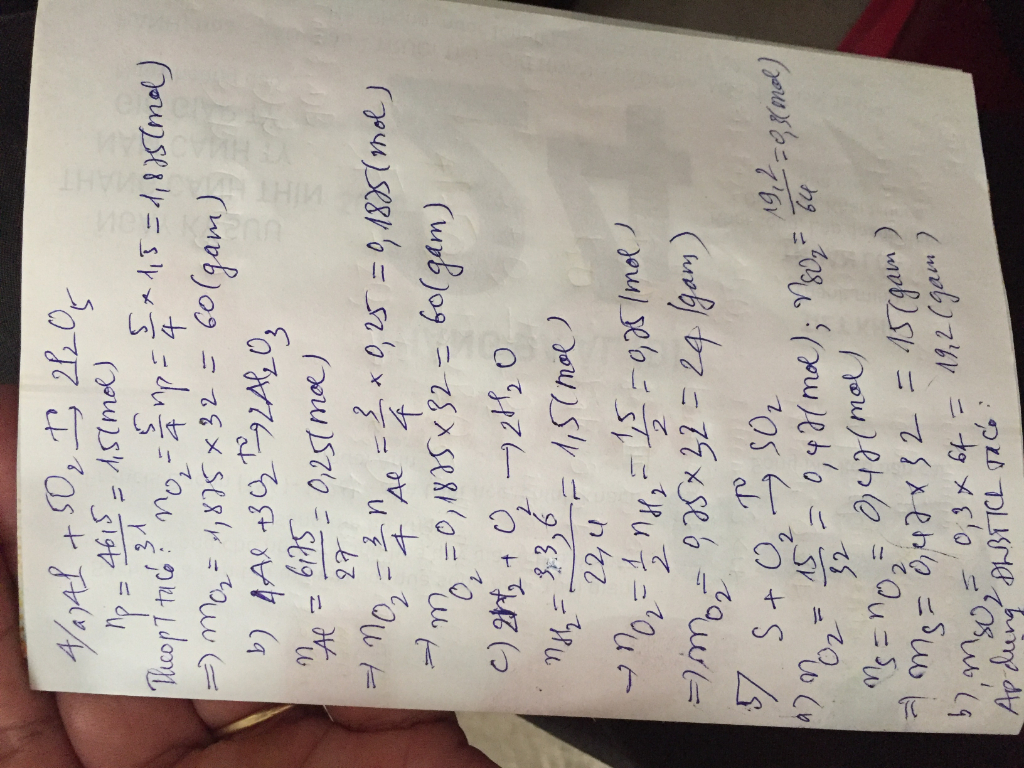 4/a) 4P + 5O2 T°→ 2P2O5
nP = 46,5/31 = 1,5(mol)
Theo PT ta có: nO2 = 5/4 nP = 5/4 × 1,5 = 1,875(mol)
=> mO2 = 1,875 × 32 = 60(gam)
b) 4Al + 3O2 T°→ 2Al2O3
nAl = 6,75/27 = 0,25(mol)
=> nO2 = 3/4 nAl = 3/4 × 0,25 = 0,1875(mol)
=> mO2 = 0,1875 × 32 = 60(gam)
c) 2H2 + O2 → 2H2O
nH2 = 33,6/22,4 = 1,5(mol)
→ nO2 = 1/2 nH2 = 1,5/2 = 0,75(mol)
=> mO2 = 0,75 × 32 = 24(gam)
5/ S + O2 T°→ SO2
a) nO2 = 15/32 = 0,47(mol); nSO2 = 19,2/64 = 0,3(mol)
nS = nO2 = 0,47(mol)
=> mS = 0,47 × 32 = 15(gam)
b) mSO2 = 0,3 × 64 = 19,2(gam)
Áp dụng ĐLBTKL ta có:
THÁNG CANH THÌN
NGÀY KỶ SỬU